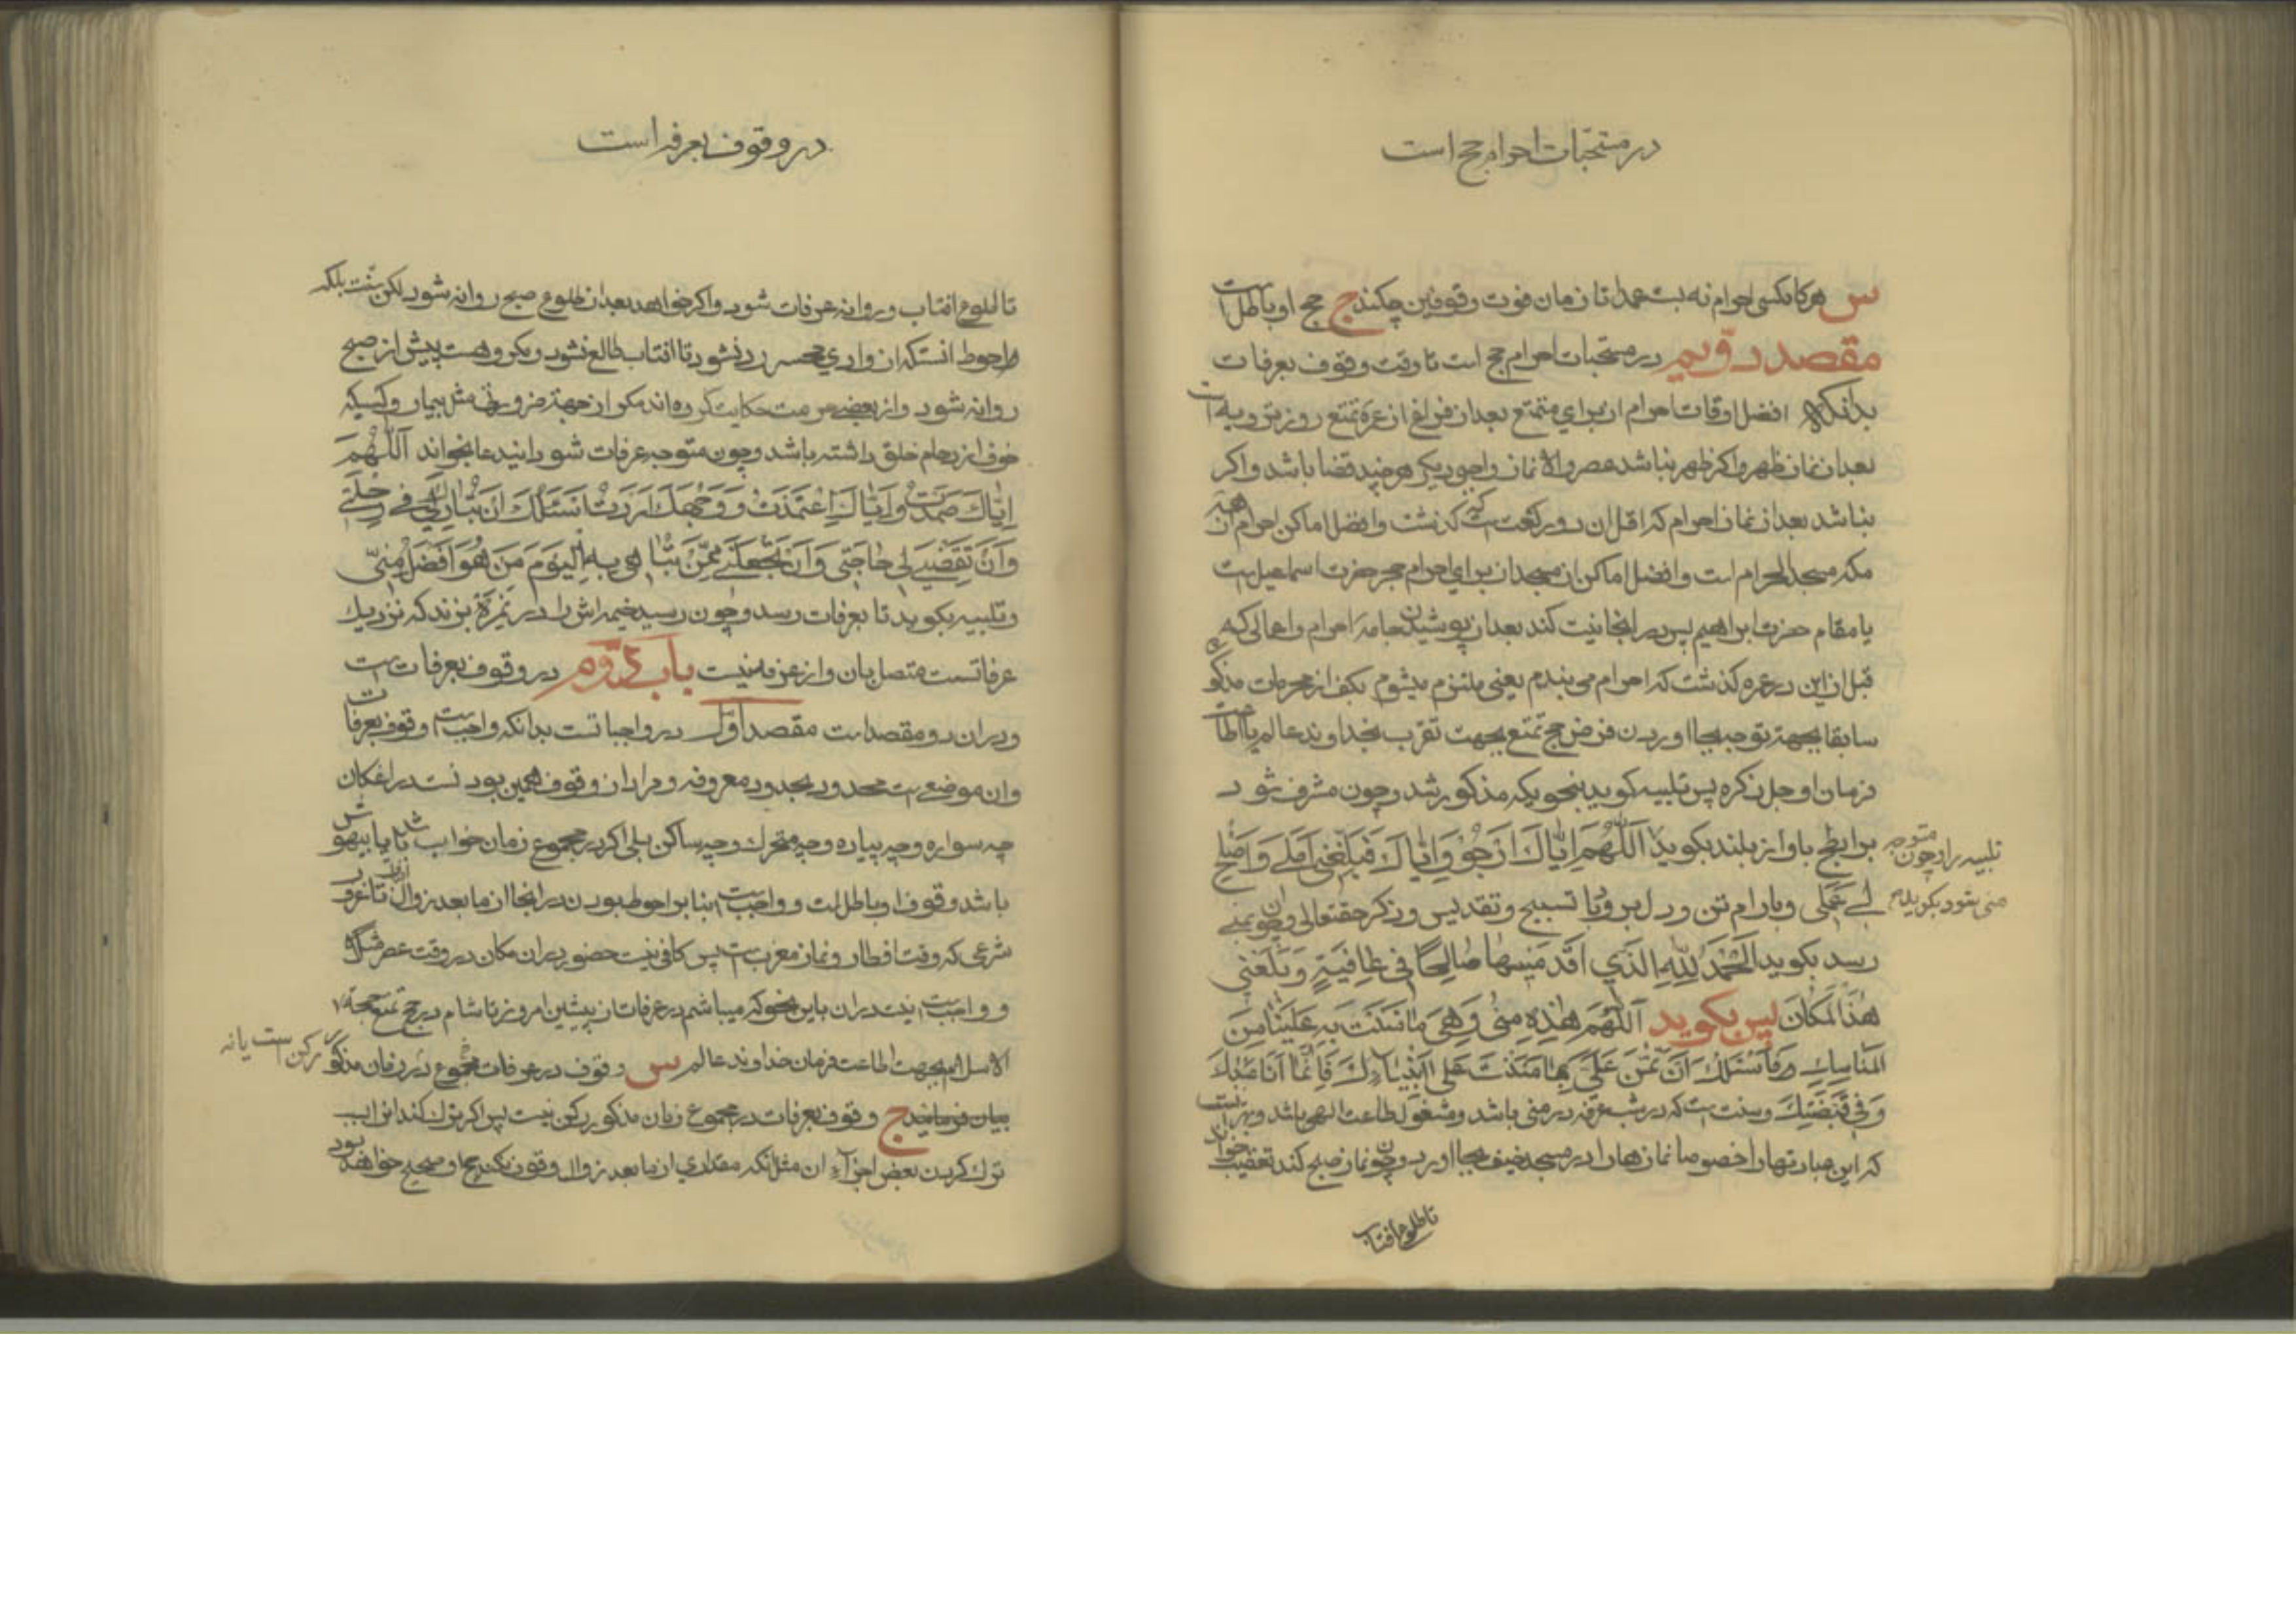 در مستحبات احرام حج است
س هرکاه کسی احرام نه بست عمدا تا زمان فوت وقوفین چکند ج حج او باطل است
مقصد دویم در مستحبات احرام حج است تا وقت وقوف بعرفات
بدانکه افضل اوقات احرام ان برای متمتع بعد از فراغ از عمره تمتع روز ترویه است
بعد از نماز ظهر واکر ظهر نباشد عصر والا نماز واجب دیکر هرچند قضا باشد واکر
نباشد بعد از نماز احرام که اقل ان دو رکعت است که کذشت وافضل اماکن احرام از همه
مکه مسجد الحرام است وافضل اماکن ان مسجد از برای احرام حجر حضرت اسماعیل است
یا مقام حضرت ابراهیم پس در اینجا نیت کند بعد از پوشیدن جامه احرام واعمالی که
قبل از این در عمره کذشت که احرام می بندم یعنی ملتزم میشوم بکف از محرمات مذکوره
سابقا بجهة توجه بجا اوردن فرض حج تمتع بجهت تقرب بخداوند عالم یا اطاعت
فرمان او جل ذکره پس تلبیه کوید بنحویکه مذکور شد وچون مشرف شود
بر ابطح باواز بلند بکوید اللهم ایاك ارجو وایاك فبلغنی املی واصلح
تلبیه را وچون متوجه
لی عملی وبارام تن ودل برود با تسبیح وتقدیس وذکر حقتعالی وچون بمنی
منی بشود بکوید
رسد بکوید الحمد لله الذی اقدمنیها صالحا فی عافیة وبلغنی
هذا المکان پس بکوید اللهم هذه منی وهی ما مننت به علینا من
المناسك فاسئلك ان تمن علی بما مننت علی انبیاءك فانما انا عبدك
وفی قبضتك وسنت است که در شب عرفه در منی باشد ومشغول طاعت الهی باشد وبهتر انست
که این عبادتها را خصوصا نمازها را در مسجد خیف بجا اورد وچون نماز صبح کند تعقیب خواند
تا طلوع افتاب
در وقوف بعرفه است
تا طلوع افتاب وروانه عرفات شود واکر خواهد بعد از طلوع صبح روانه شود لکن سنت بلکه
احوط انست که از وادی محسر رد نشود تا افتاب طالع نشود ومکروهست پیش از صبح
روانه شود واز بعضی حرمت حکایت کرده اند مکر از جهة ضرورتی مثل بیمار وکسیکه
خوف از زحام خلق داشته باشد وچون متوجه عرفات شود ایندعا بخواند اللهم
ایاك صمدت وایاك اعتمدت ووجهك اردت اسئلك ان تبارك لی فی رحلتی
وان تقضی لی حاجتی وان تجعلنی ممن تباهی به الیوم من هو افضل منی
وتلبیه بکوید تا بعرفات رسد وچون رسید خیمه اش را در نمرة بزند که نزدیك
عرفاتست متصل بان واز عرفه نیست باب دوم در وقوف بعرفات است
ودر ان دو مقصد است مقصد اول در واجبا تست بدانکه واجب است وقوف بعرفات
وان موضعی است محدود بحدود معروفه ومراد از وقوف همین بود نست در انمکان
چه سواره وچه پیاده وچه متحرك وچه ساکن بلی اکر در مجموع زمان خواب باشد یا بیهوش
باشد وقوف او باطل است وواجب است بنا بر احوط بودن در انجا از ما بعد زوال تا غروب
شرعی که وقت افطار ونماز مغرب است پس کافی نیست حضور در ان مکان در وقت عصر
وواجب است نیت در ان باین نحو که میباشم در عرفات از پیشین امروز تا شام در حج تمتع حجة
الاسلام بجهت اطاعت فرمان خداوند عالم س وقوف در عرفات مجموع در زمان مذکور رکن است یا نه
بیان فرمائید ج وقوف بعرفات در مجموع زمان مذکور رکن نیست پس اکر ترك کند
ترك کردن بعض اجزاء ان مثل انکه مقداری از ما بعد زوال وقوف نکند حج او صحیح خواهد بود